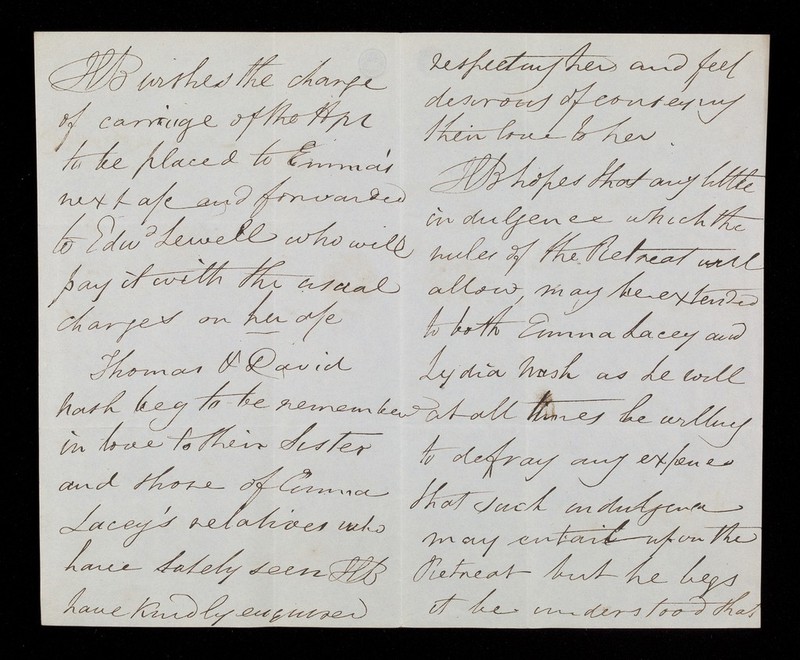 HB wishes the charge
of carriage of the
to be placed to Emma's
next a/c and forwarded
to Edwd Sewell who will
pay it with the usual
charges on her a/c
Thomas & David
Nash beg to be remembered
in love to their Sister
and those of Emma
Lacey's relatives who
have lately seen HB
have kindly enquired
respecting her and feel
desirous of conveying
their love to her.
HB hopes that any little
indulgence which the
rules of the Retreat will
allow, may be extended
to both Emma Lacey and
Lydia Nash as he will
at all times be willing
to defray any expence
that such indulgence
may entail upon the
Retreat but he begs
it be understood that